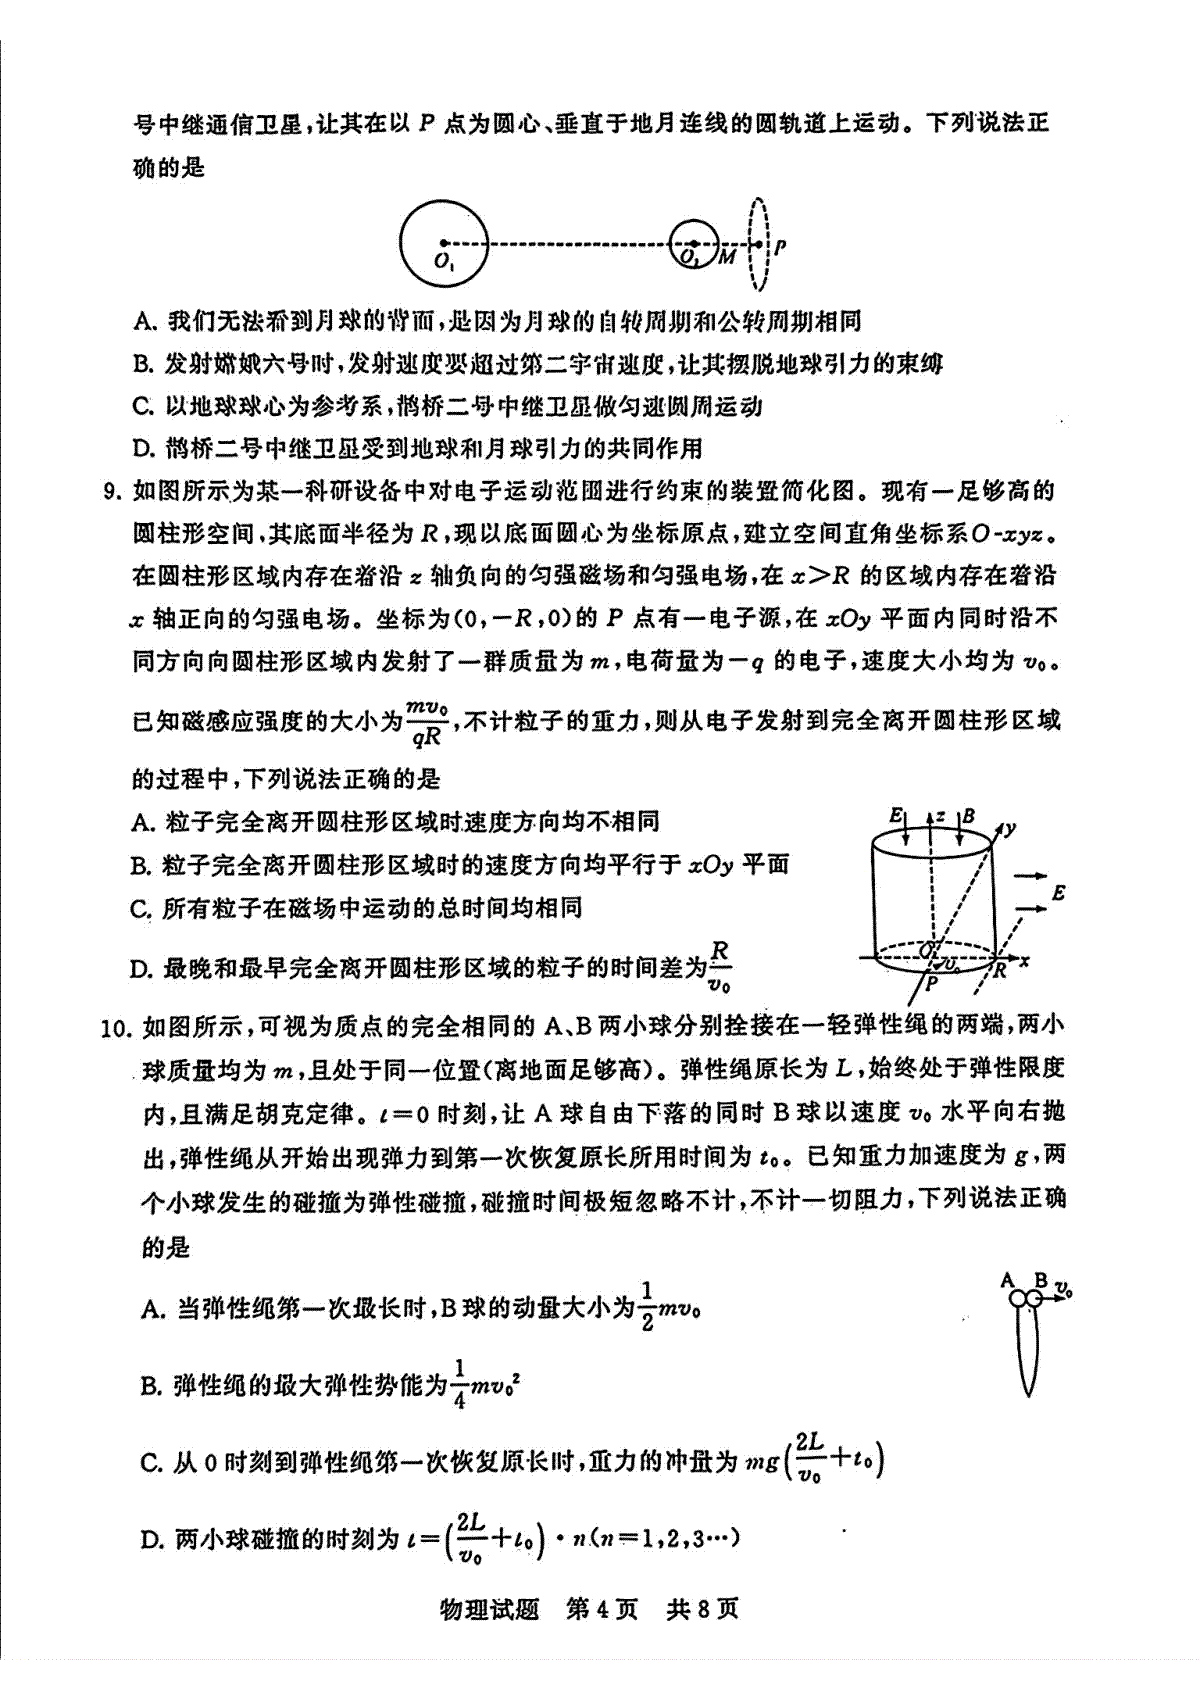 号中继通信卫星,让其在以 P 点为圆心、垂直于地月连线的圆轨道上运动。下列说法正
确的是
O₁ O₂ M P
A. 我们无法看到月球的背面,是因为月球的自转周期和公转周期相同
B. 发射嫦娥六号时,发射速度要超过第二宇宙速度,让其摆脱地球引力的束缚
C. 以地球球心为参考系,鹊桥二号中继卫星做匀速圆周运动
D. 鹊桥二号中继卫星受到地球和月球引力的共同作用
9. 如图所示为某一科研设备中对电子运动范围进行约束的装置简化图。现有一足够高的
圆柱形空间,其底面半径为 R,现以底面圆心为坐标原点,建立空间直角坐标系O-xyz。
在圆柱形区域内存在着沿 z 轴负向的匀强磁场和匀强电场,在 x>R 的区域内存在着沿
x 轴正向的匀强电场。坐标为(0,-R,0)的 P 点有一电子源,在 xOy 平面内同时沿不
同方向向圆柱形区域内发射了一群质量为 m,电荷量为-q 的电子,速度大小均为 v₀。
已知磁感应强度的大小为mv₀/qR,不计粒子的重力,则从电子发射到完全离开圆柱形区域
的过程中,下列说法正确的是
A. 粒子完全离开圆柱形区域时速度方向均不相同
B. 粒子完全离开圆柱形区域时的速度方向均平行于 xOy 平面
C. 所有粒子在磁场中运动的总时间均相同
D. 最晚和最早完全离开圆柱形区域的粒子的时间差为R/v₀
E z B y
E
O v₀ P R x
10. 如图所示,可视为质点的完全相同的 A、B 两小球分别拴接在一轻弹性绳的两端,两小
球质量均为 m,且处于同一位置(离地面足够高)。弹性绳原长为 L,始终处于弹性限度
内,且满足胡克定律。t=0 时刻,让 A 球自由下落的同时 B 球以速度 v₀ 水平向右抛
出,弹性绳从开始出现弹力到第一次恢复原长所用时间为 t₀。已知重力加速度为 g,两
个小球发生的碰撞为弹性碰撞,碰撞时间极短忽略不计,不计一切阻力,下列说法正确
的是
A. 当弹性绳第一次最长时,B球的动量大小为1/2mv₀
B. 弹性绳的最大弹性势能为1/4mv₀²
C. 从 0 时刻到弹性绳第一次恢复原长时,重力的冲量为 mg(2L/v₀+t₀)
D. 两小球碰撞的时刻为 t=(2L/v₀+t₀)·n(n=1,2,3…)
A B v₀
物理试题 第 4 页 共 8 页